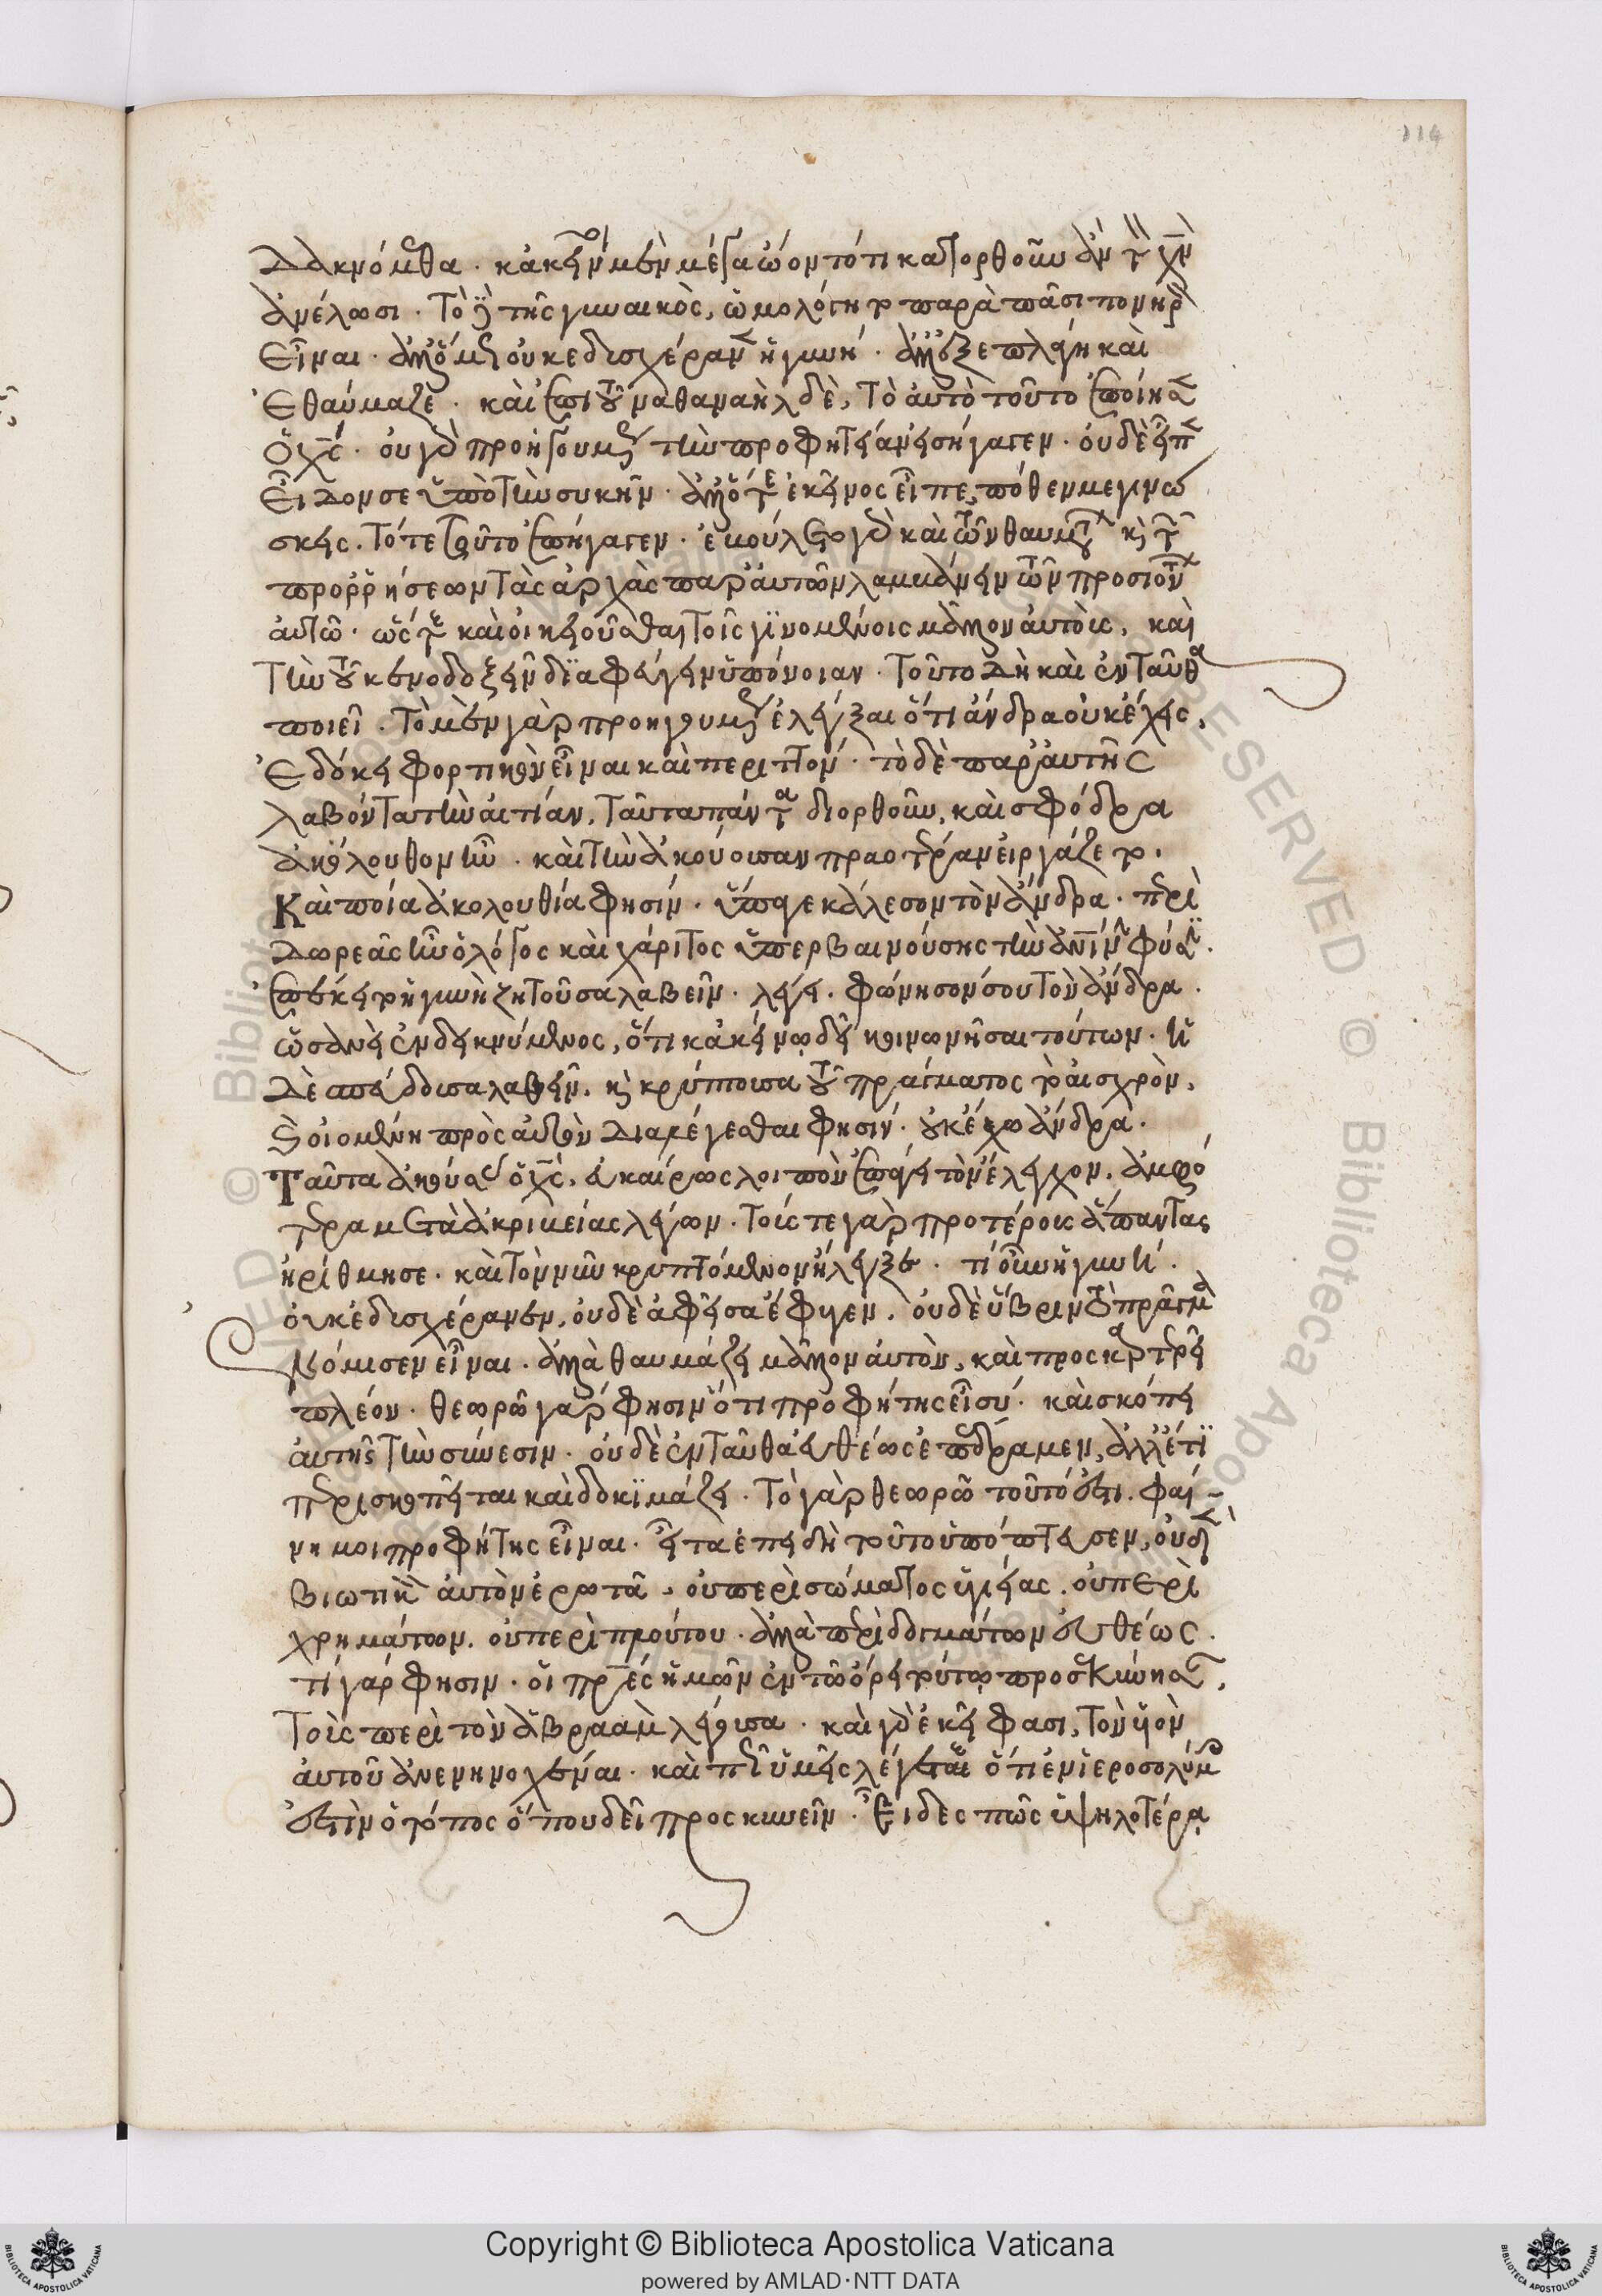 114
δακνόμεθα. κἀκεῖνοι μὲν μέγα ᾤοντό τι κατορθοῦν ἂν τὴν χήραν
ἀνέλωσι. τὸ δὲ τῆς γυναικὸς, ὡμολόγητο παρὰ πᾶσι πονηρὸν
εἶναι. ἀλλ' ὅμως οὐκ ἐδυσχέρανεν ἡ γυνή. ἀλλ' ἐξεπλάγη καὶ
ἐθαύμαζε. καὶ ἐπὶ τοῦ ναθαναὴλ δὲ, τὸ αὐτὸ τοῦτο ἐποίησεν
ὁ χς. οὐ γὰρ προηγουμένως τὴν προφητείαν εἰσήγαγεν. οὐδὲ εἶπεν
εἶδον σε ὑπὸ τὴν συκῆν. ἀλλ' ὅτε ἐκεῖνος εἶπε, πόθεν με γινώ
σκεις. τότε τοῦτο ἐπήγαγεν. ἐβούλετο γὰρ καὶ τῶν θαυμάτων καὶ τῶν
προρρήσεων τὰς ἀρχὰς παρ' αὐτῶν λαμβάνειν τῶν προσιόντων
αὐτῶ. ὥστε καὶ οἰκειοῦσθαι τοῖς γινομένοις μᾶλλον αὐτοὺς, καὶ
τὴν τοῦ κενοδοξεῖν διαφεύγειν ὑπόνοιαν. τοῦτο δὴ καὶ ἐνταῦθα
ποιεῖ. τὸ μὲν γὰρ προηγουμένως ἐλέγξαι ὅτι ἄνδρα οὐκ ἔχεις,
ἐδόκει φορτικὸν εἶναι καὶ περιττόν. τὸ δὲ παρ' αὐτῆς
λαβόντα τὴν αἰτίαν, ταῦτα πάντα διορθοῦν, καὶ σφόδρα
ἀκόλουθον ἦν. καὶ τὴν ἀκούουσαν πραοτέραν εἰργάζετο.
Καὶ ποία ἀκολουθία φησίν. ὕπαγε κάλεσον τὸν ἄνδρα. περὶ
δωρεᾶς ἦν ὁ λόγος καὶ χάριτος ὑπερβαινούσης τὴν ἀνθρωπίνην φύσιν.
ἐπέκειτο ἡ γυνὴ ζητοῦσα λαβεῖν. λέγει. φώνησον σου τὸν ἄνδρα.
ὡσανεὶ ἐνδεικνύμενος, ὅτι κἀκείνῳ δεῖ κοινωνῆσαι τούτων. ἡ
δὲ σπεύδουσα λαβεῖν. καὶ κρύπτουσα τοῦ πράγματος τὸ αἰσχρὸν,
καὶ οἰομένη πρὸς αὐτὸν διαλέγεσθαι φησίν. οὐκ ἔχω ἄνδρα.
Ταῦτα ἀκούσας ὁ χς, εὐκαίρως λοιπὸν ἐπάγει τὸν ἔλεγχον. ἀμφό
τερα μετὰ ἀκριβείας λέγων. τούς τε γὰρ προτέρους ἅπαντας
ἠρίθμησε. καὶ τὸν νῦν κρυπτόμενον ἤλεγξε. τί οὖν ἡ γυνή.
οὐκ ἐδυσχέρανεν, οὐδὲ ἀφεῖσα ἔφυγεν. οὐδὲ ὕβριν τὸ πρᾶγμα
ἐνόμισεν εἶναι. ἀλλὰ θαυμάζει μᾶλλον αὐτὸν, καὶ προσκαρτερεῖ
πλέον. θεωρῶ γάρ φησιν ὅτι προφήτης εἶ σύ. καὶ σκόπει
αὐτῆς τὴν σύνεσιν. οὐδὲ ἐνταῦθα εὐθέως ἐπέδραμεν, ἀλλ' ἔτι
περισκοπεῖται καὶ δοκιμάζει. τὸ γὰρ θεωρῶ τοῦτό ἐστι. φαί-
νῃ μοι προφήτης εἶναι. εἶτα ἐπειδὴ τοῦτο ὑπόπτευσεν, οὐδὲν
βιωτικὸν αὐτὸν ἐρωτᾶ, οὐ περὶ σώματος ὑγιείας. οὐ περὶ
χρημάτων, οὐ περὶ πλούτου. ἀλλὰ περὶ δογμάτων εὐθέως.
τί γάρ φησιν. οἱ πρες ἡμῶν ἐν τῶ ὄρει τούτω προσεκύνησαν,
τοὺς περὶ τὸν ἀβραὰμ λέγουσα. καὶ γὰρ ἐκεῖ φασι, τὸν υἱὸν
αὐτοῦ ἀνενηνοχέναι. καὶ πῶς ὑμεῖς λέγεται ὅτι ἐν ἱεροσολύμοις
ἐστὶν ὁ τόπος ὅπου δεῖ προσκυνεῖν. Εἶδες πῶς ὑψηλοτέρα
Copyright © Biblioteca Apostolica Vaticana
powered by AMLAD·NTT DATA